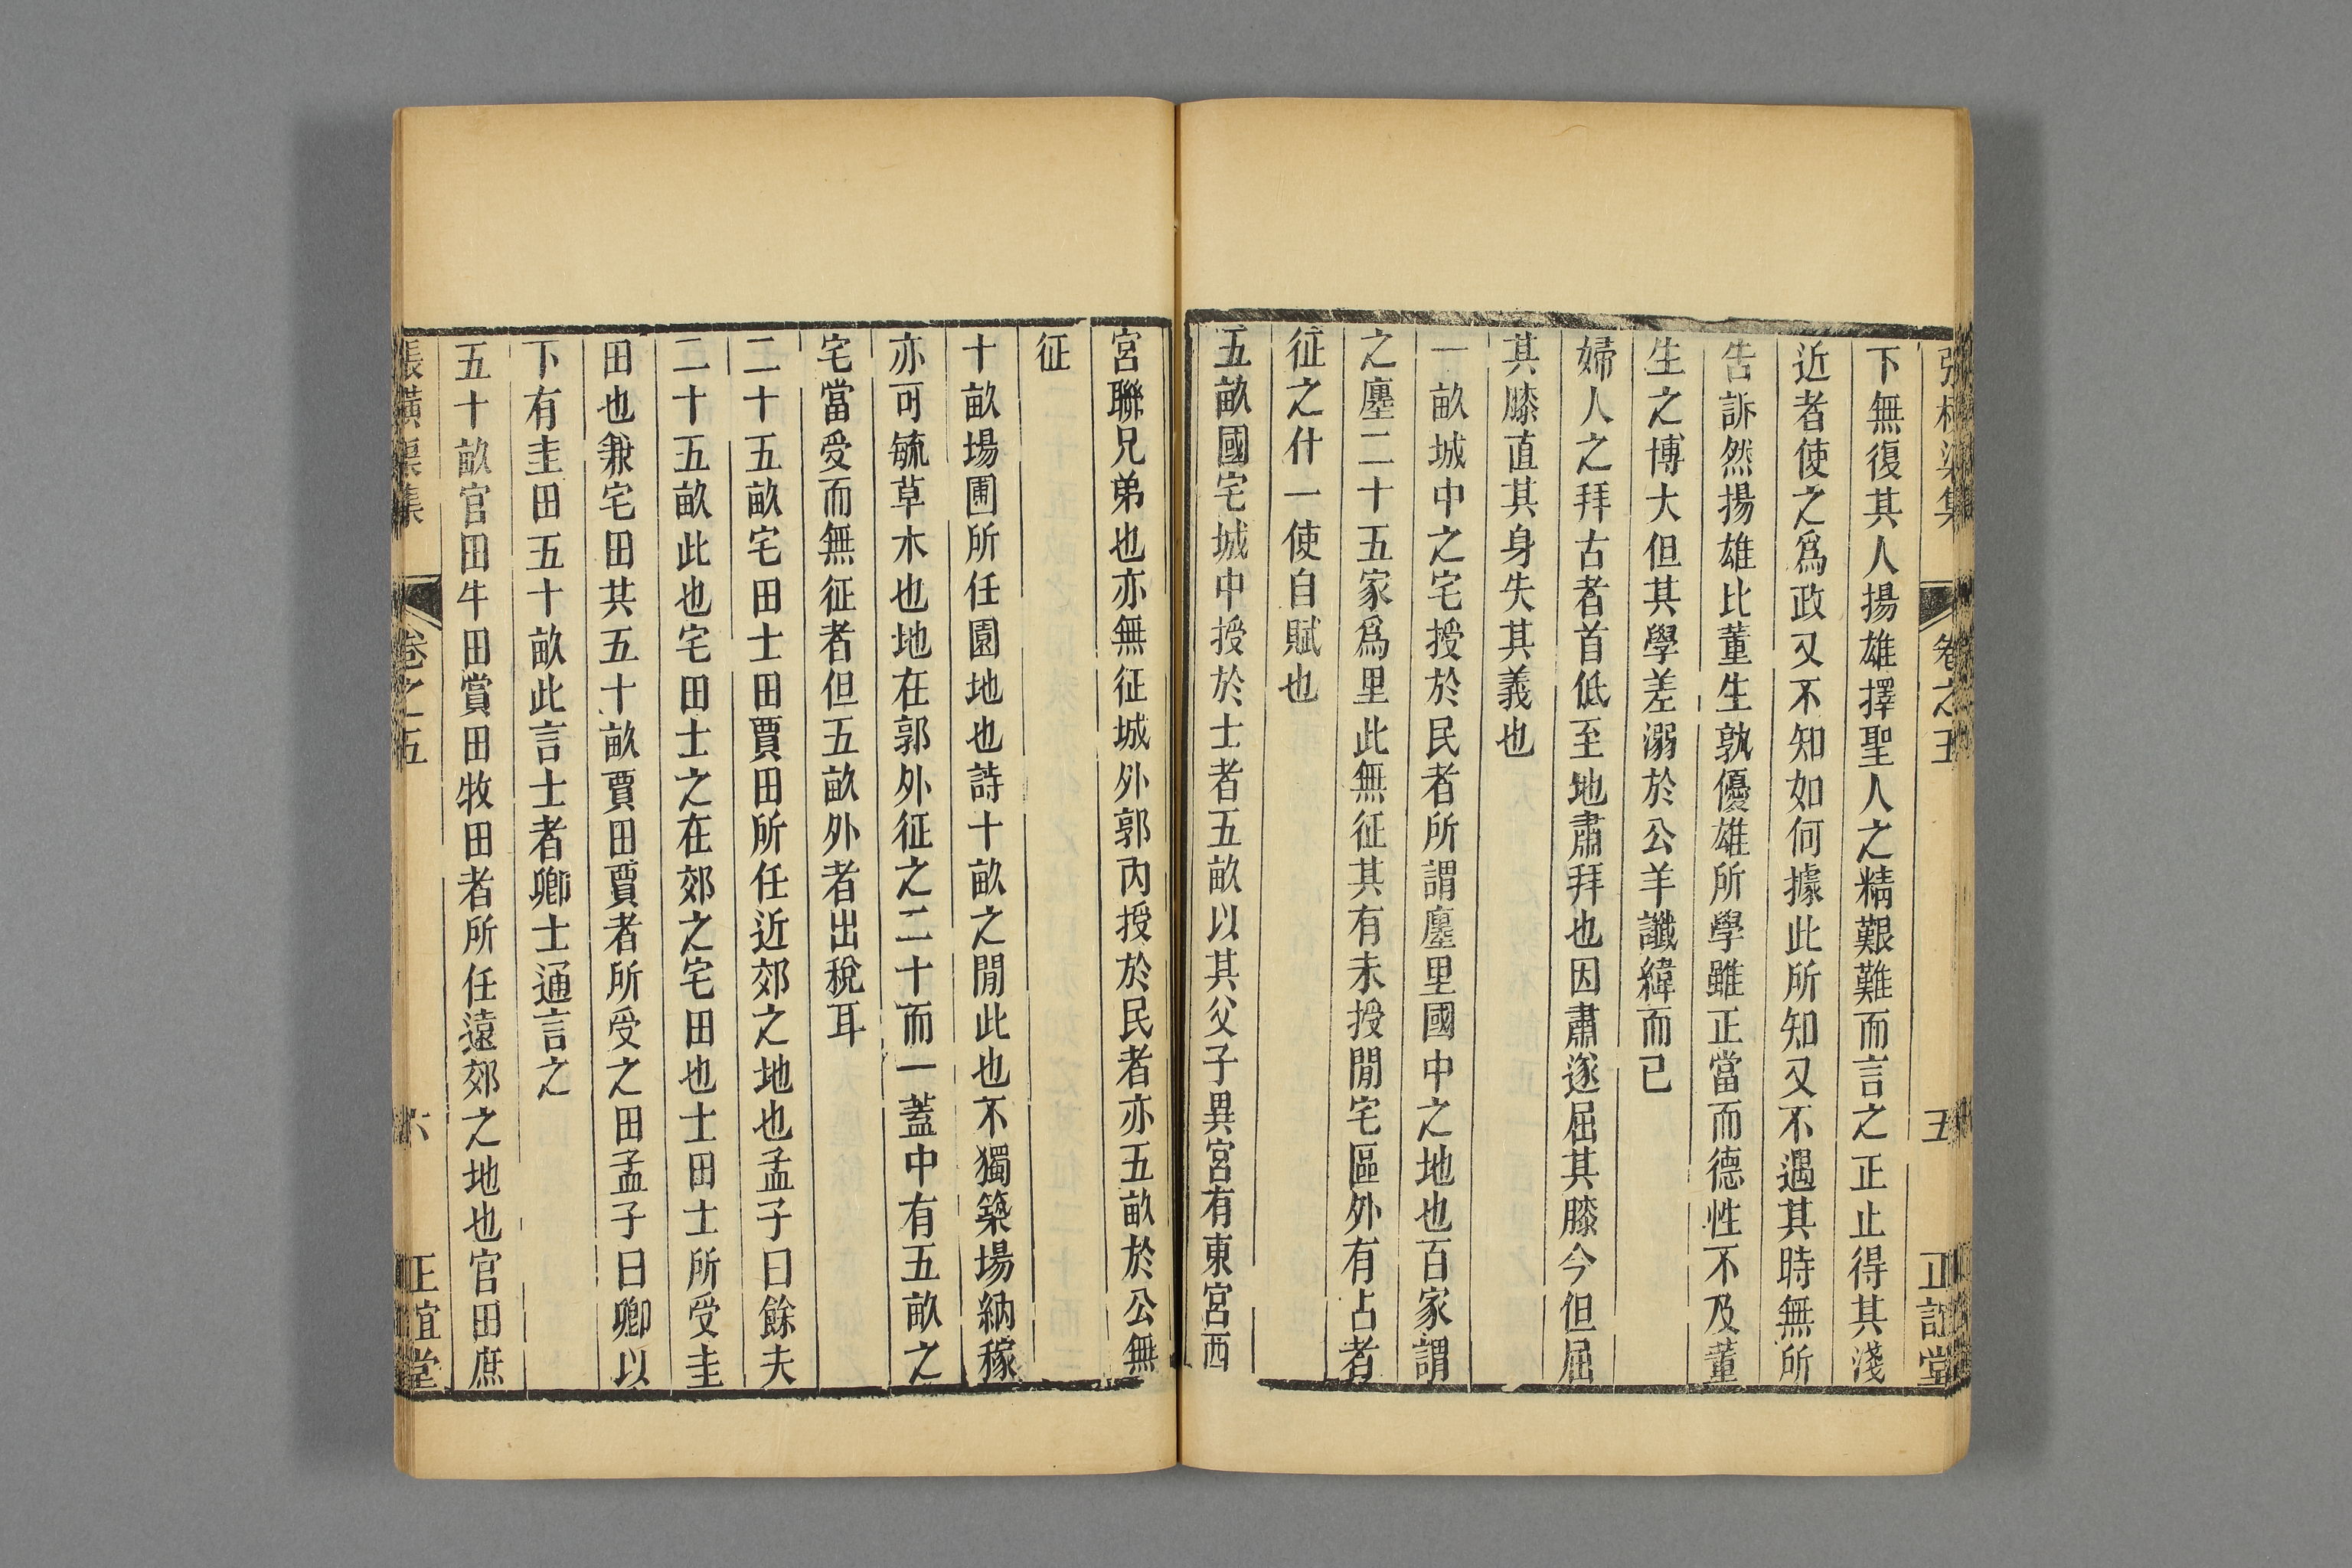 張橫渠集 卷之五 五 正誼堂
下無復其人揚雄擇聖人之精艱難而言之正止得其淺
近者使之爲政又不知如何據此所知又不遇其時無所
告訴然揚雄比董生孰優雄所學雖正當而德性不及董
生之博大但其學差溺於公羊讖緯而已
婦人之拜古者首低至地肅拜也因肅遂屈其膝今但屈
其膝直其身失其義也
一畝城中之宅授於民者所謂廛里國中之地也百家謂
之廛二十五家爲里此無征其有未授閒宅區外有占者
征之什一使自賦也
五畝國宅城中授於士者五畝以其父子異宮有東宮西
宮聯兄弟也亦無征城外郭內授於民者亦五畝於公無
征
十畝場圃所任園地也詩十畝之閒此也不獨築場納稼
亦可毓草木也地在郭外征之二十而一蓋中有五畝之
宅當受而無征者但五畝外者出稅耳
二十五畝宅田士田賈田所任近郊之地也孟子曰餘夫
二十五畝此也宅田士之在郊之宅田也士田士所受圭
田也兼宅田共五十畝賈田賈者所受之田孟子曰卿以
下有圭田五十畝此言士者卿士通言之
五十畝官田牛田賞田牧田者所任遠郊之地也官田庶
張橫渠集 卷之五 六 正誼堂